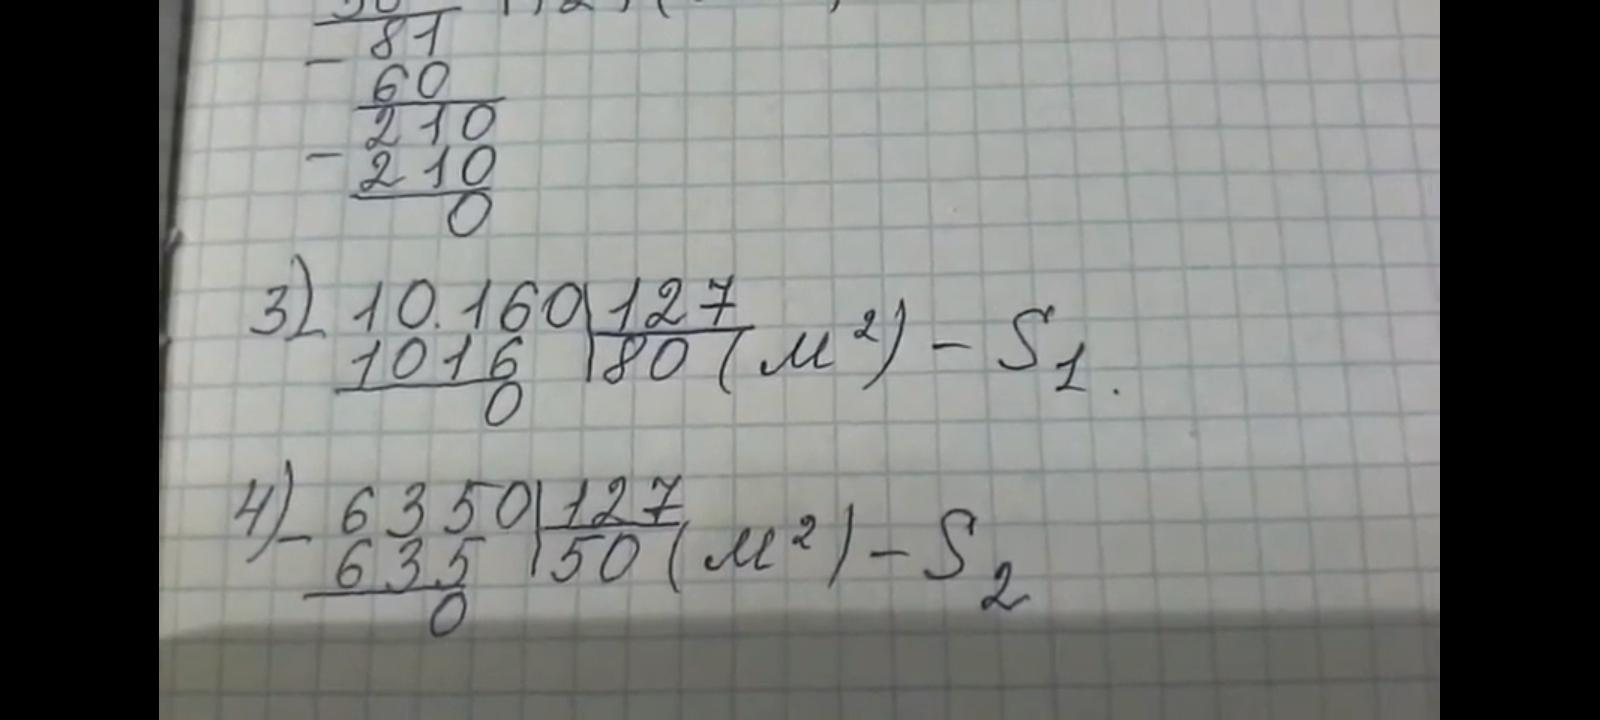 - 81
60
210
- 210
0
3) - 10.160 | 127
1016 | 80 (м²) - S₁.
0
4) - 6350 | 127
635 | 50 (м²) - S₂
0